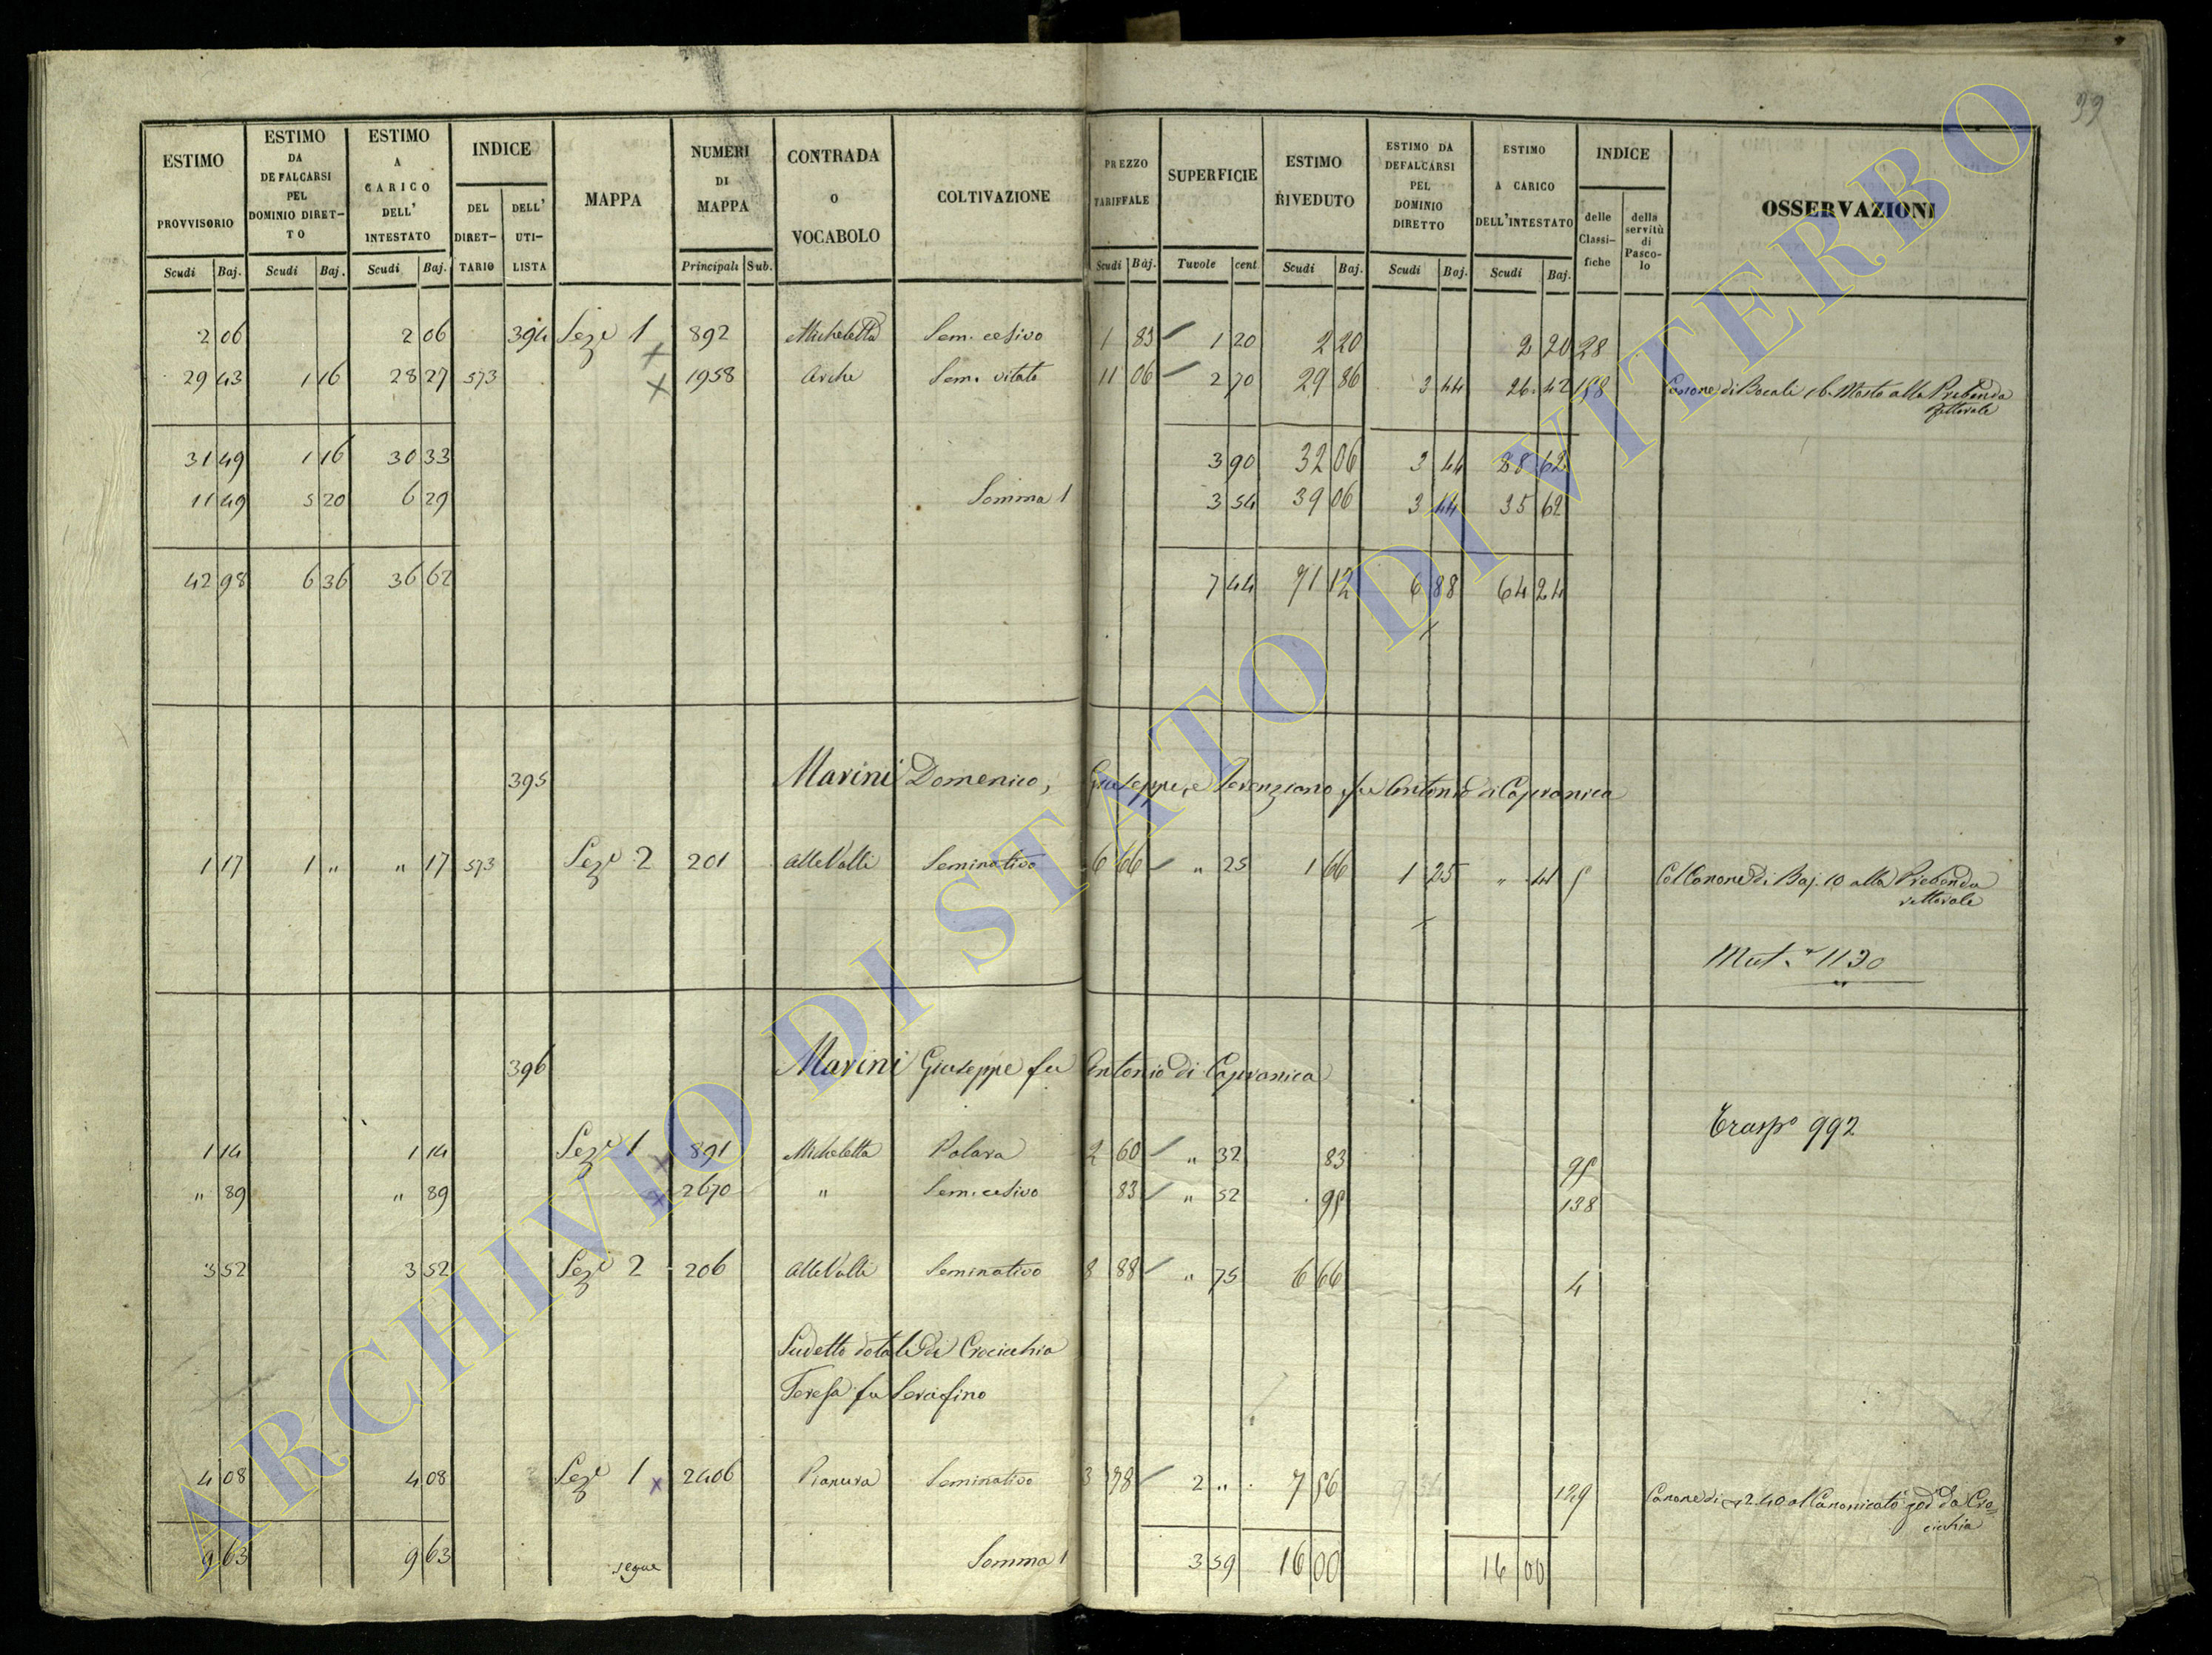 99
ESTIMO PROVVISORIO Scudi Baj.
ESTIMO DA DEFALCARSI PEL DOMINIO DIRET-TO Scudi Baj.
ESTIMO A CARICO DELL' INTESTATO Scudi Baj.
INDICE DEL DIRET-TARIO DELL' UTI-LISTA
MAPPA
NUMERI DI MAPPA Principali Sub.
CONTRADA O VOCABOLO
COLTIVAZIONE
PREZZO TARIFFALE Scudi Baj.
SUPERFICIE Tavole cent
ESTIMO RIVEDUTO Scudi Baj.
ESTIMO DA DEFALCARSI PEL DOMINIO DIRETTO Scudi Baj.
ESTIMO A CARICO DELL'INTESTATO Scudi Baj.
INDICE delle Classi-fiche della servitù di Pasco-lo
OSSERVAZIONI
2 06 2 06 394 Seze 1 892 Micheletta Sem. cesivo 1 83 1 20 2 20 2 20 28
29 43 1 16 28 27 573 1958 Arche Sem. vitato 11 06 2 70 29 86 3 44 26 42 158 Canone di Bocali 16 Mosto alla Prebenda
rettorale
31 49 1 16 30 33 3 90 32 06 3 44 28 62
11 49 5 20 6 29 Somma 1 3 54 39 06 3 44 35 62
42 98 6 36 36 62 7 44 71 12 6 88 64 24
395 Marini Domenico, Giuseppe, e Terenziano fu Antonio di Capranica
1 17 1 " " 17 573 Seze 2 201 Alle Valli Seminativo 6 66 " 25 1 66 1 25 " 41 5 Col Canone di Baj. 10 alla Prebenda
rettorale
Mut.e 1130
396 Marini Giuseppe fu Antonio di Capranica
Traspo 992
1 14 1 14 Seze 1 891 Micheletta Polara 2 60 " 32 83 95
" 89 " 89 2670 " Sem. cesivo 83 " 52 95 138
3 52 3 52 Seze 2 206 Alle Valli Seminativo 8 88 " 75 6 66 4
Sudetto dotale di Crocicchia
Teresa fu Serafino
4 08 4 08 Seze 1 2406 Pianura Seminativo 3 78 2 " 7 56 129 Canone di 2.40 al Canonicato god. da Cro=
cicchia
9 63 9 63 segue Somma 1 3 59 16 00 16 00
ARCHIVIO DI STATO DI VITERBO